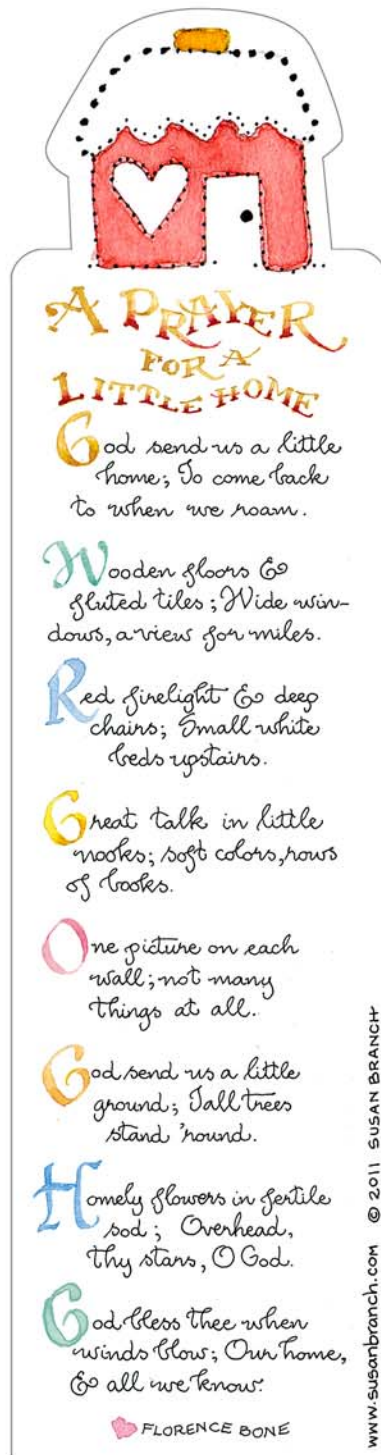 A PRAYER
FOR A
LITTLE HOME
God send us a little
home; To come back
to when we roam.
Wooden floors &
fluted tiles; Wide win-
dows, a view for miles.
Red firelight & deep
chairs; Small white
beds upstairs.
Great talk in little
nooks; soft colors, rows
of books.
One picture on each
wall; not many
things at all.
God send us a little
ground; Tall trees
stand 'round.
Homely flowers in fertile
sod; Overhead,
thy stars, O God.
God bless thee when
winds blow; Our home,
& all we know.
FLORENCE BONE
www.susanbranch.com © 2011 SUSAN BRANCH